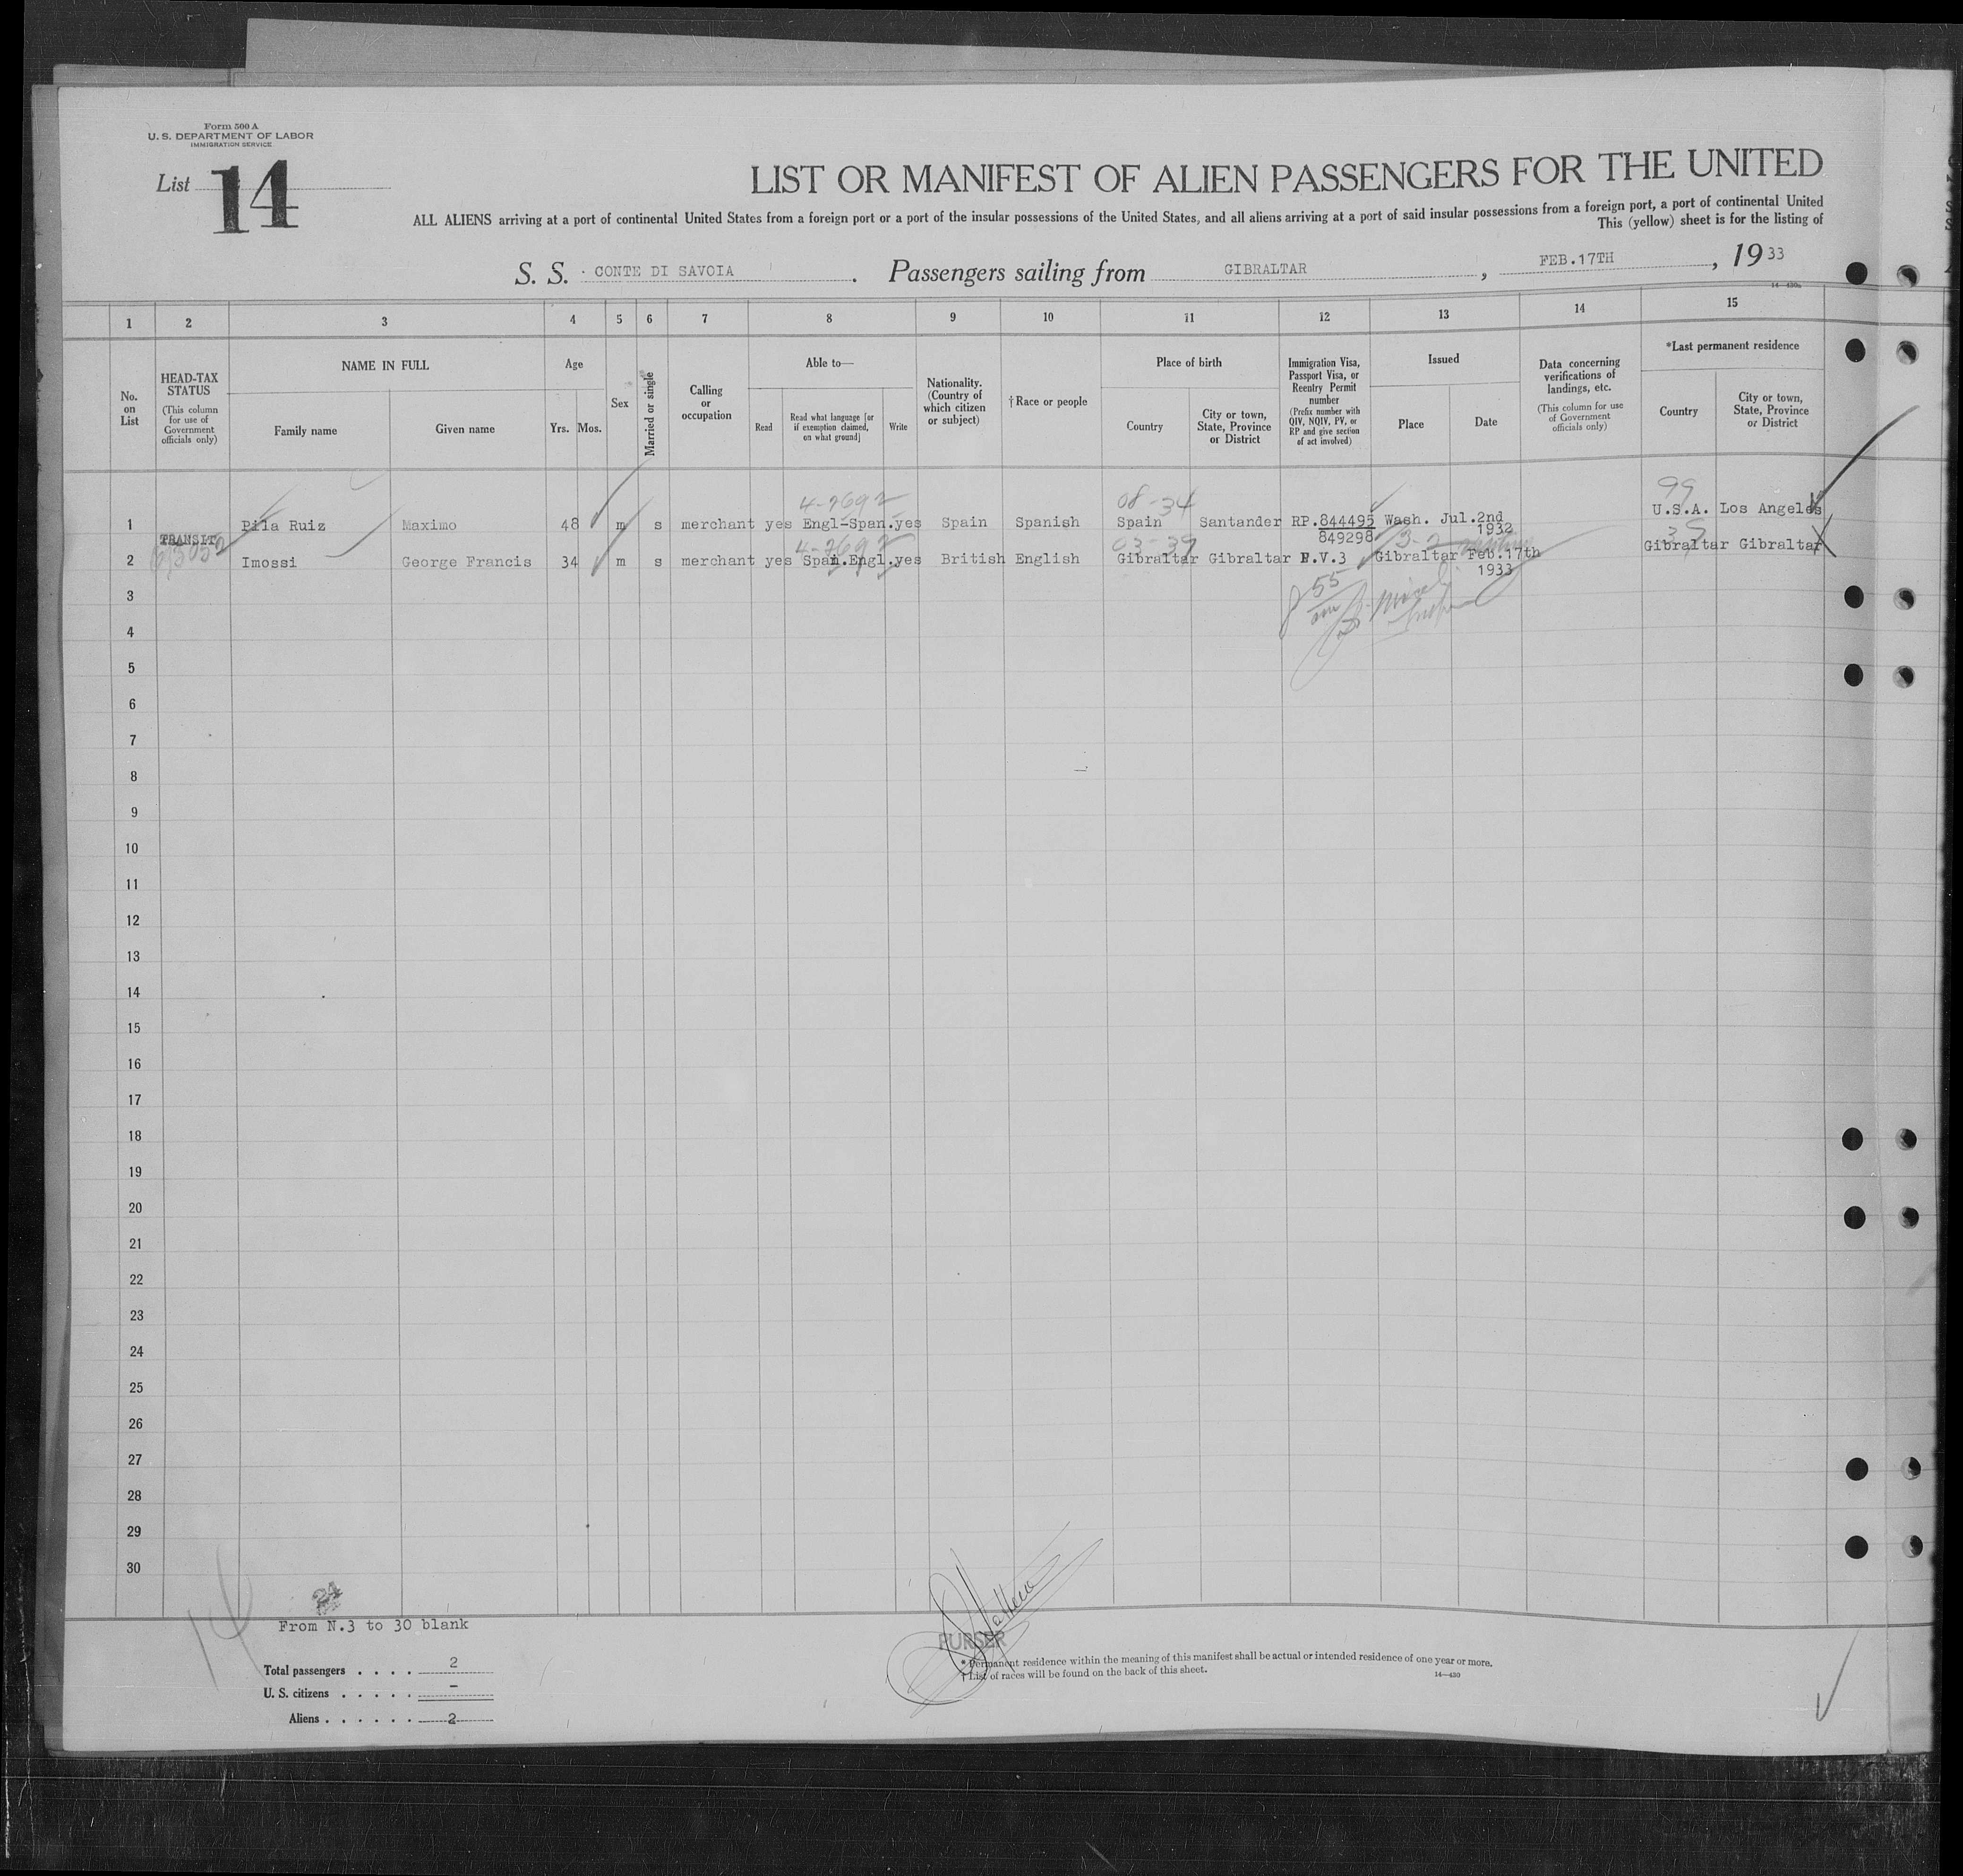 Form 500 A
U. S. DEPARTMENT OF LABOR
IMMIGRATION SERVICE
List 14
LIST OR MANIFEST OF ALIEN PASSENGERS FOR THE UNITED
ALL ALIENS arriving at a port of continental United States from a foreign port or a port of the insular possessions of the United States, and all aliens arriving at a port of said insular possessions from a foreign port, a port of continental United
This (yellow) sheet is for the listing of
S. S. CONTE DI SAVOIA. Passengers sailing from GIBRALTAR, FEB.17TH, 1933
1 2 3 4 5 6 7 8 9 10 11 12 13 14 15
No. on List
HEAD-TAX STATUS
(This column for use of Government officials only)
NAME IN FULL
Family name
Given name
Age
Yrs. Mos.
Sex
Married or single
Calling or occupation
Able to—
Read
Read what language [or if exemption claimed, on what ground]
Write
Nationality. (Country of which citizen or subject)
†Race or people
Place of birth
Country
City or town, State, Province or District
Immigration Visa, Passport Visa, or Reentry Permit number
(Prefix number with QIV, NQIV, PV, or RP and give section of act involved)
Issued
Place
Date
Data concerning verifications of landings, etc.
(This column for use of Government officials only)
*Last permanent residence
Country
City or town, State, Province or District
4-2692 08-34 99
1 Pila Ruiz Maximo 48 m s merchant yes Engl-Span.yes Spain Spanish Spain Santander RP.844495 Wash. Jul.2nd U.S.A. Los Angeles
849298 1932
TRANSIT
4-2692 03-39 3-2
2 Imossi George Francis 34 m s merchant yes Span.Engl.yes British English Gibraltar Gibraltar P.V.3 Gibraltar Feb.17th Gibraltar Gibraltar
1933
55
3
4
5
6
7
8
9
10
11
12
13
14
15
16
17
18
19
20
21
22
23
24
25
26
27
28
29
30
14
24
From N.3 to 30 blank
Total passengers . . . . 2
U. S. citizens . . . . . -
Aliens . . . . . . 2
PURSER
* Permanent residence within the meaning of this manifest shall be actual or intended residence of one year or more.
† List of races will be found on the back of this sheet.
14—430